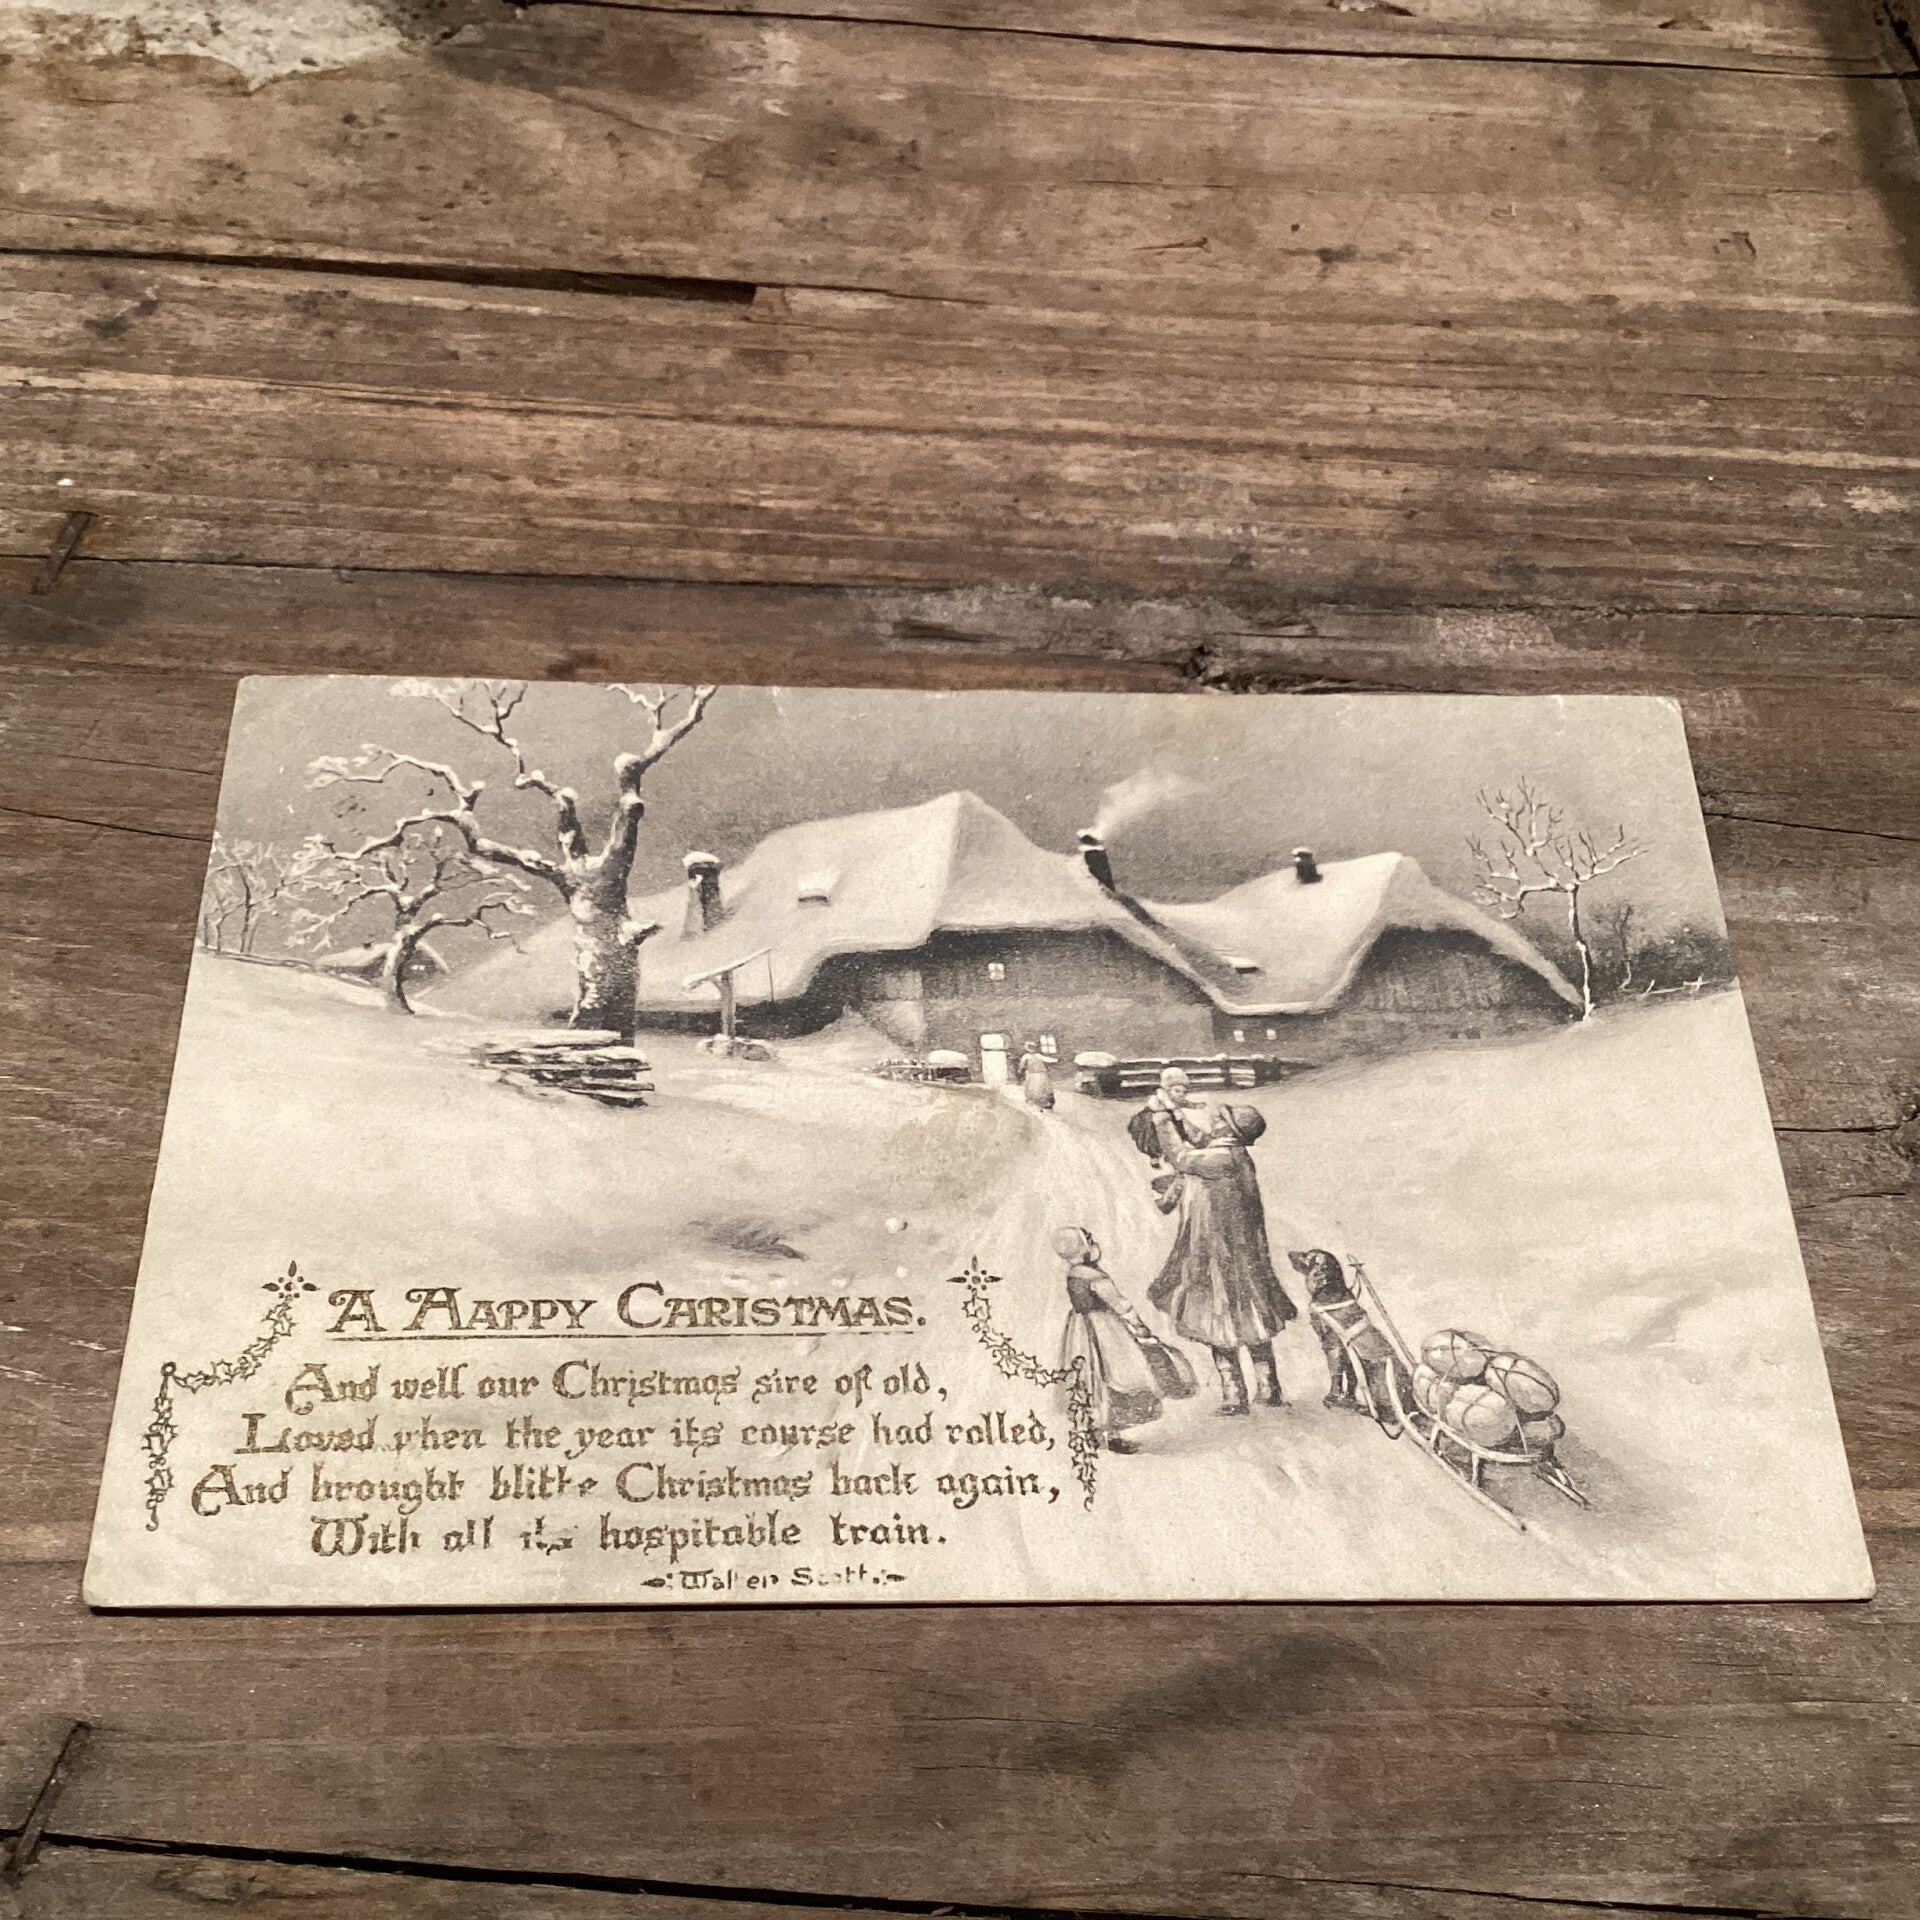 A HAPPY CHRISTMAS.
And well our Christmas sire of old,
Loved when the year its course had rolled,
And brought blithe Christmas back again,
With all its hospitable train.
Walter Scott.